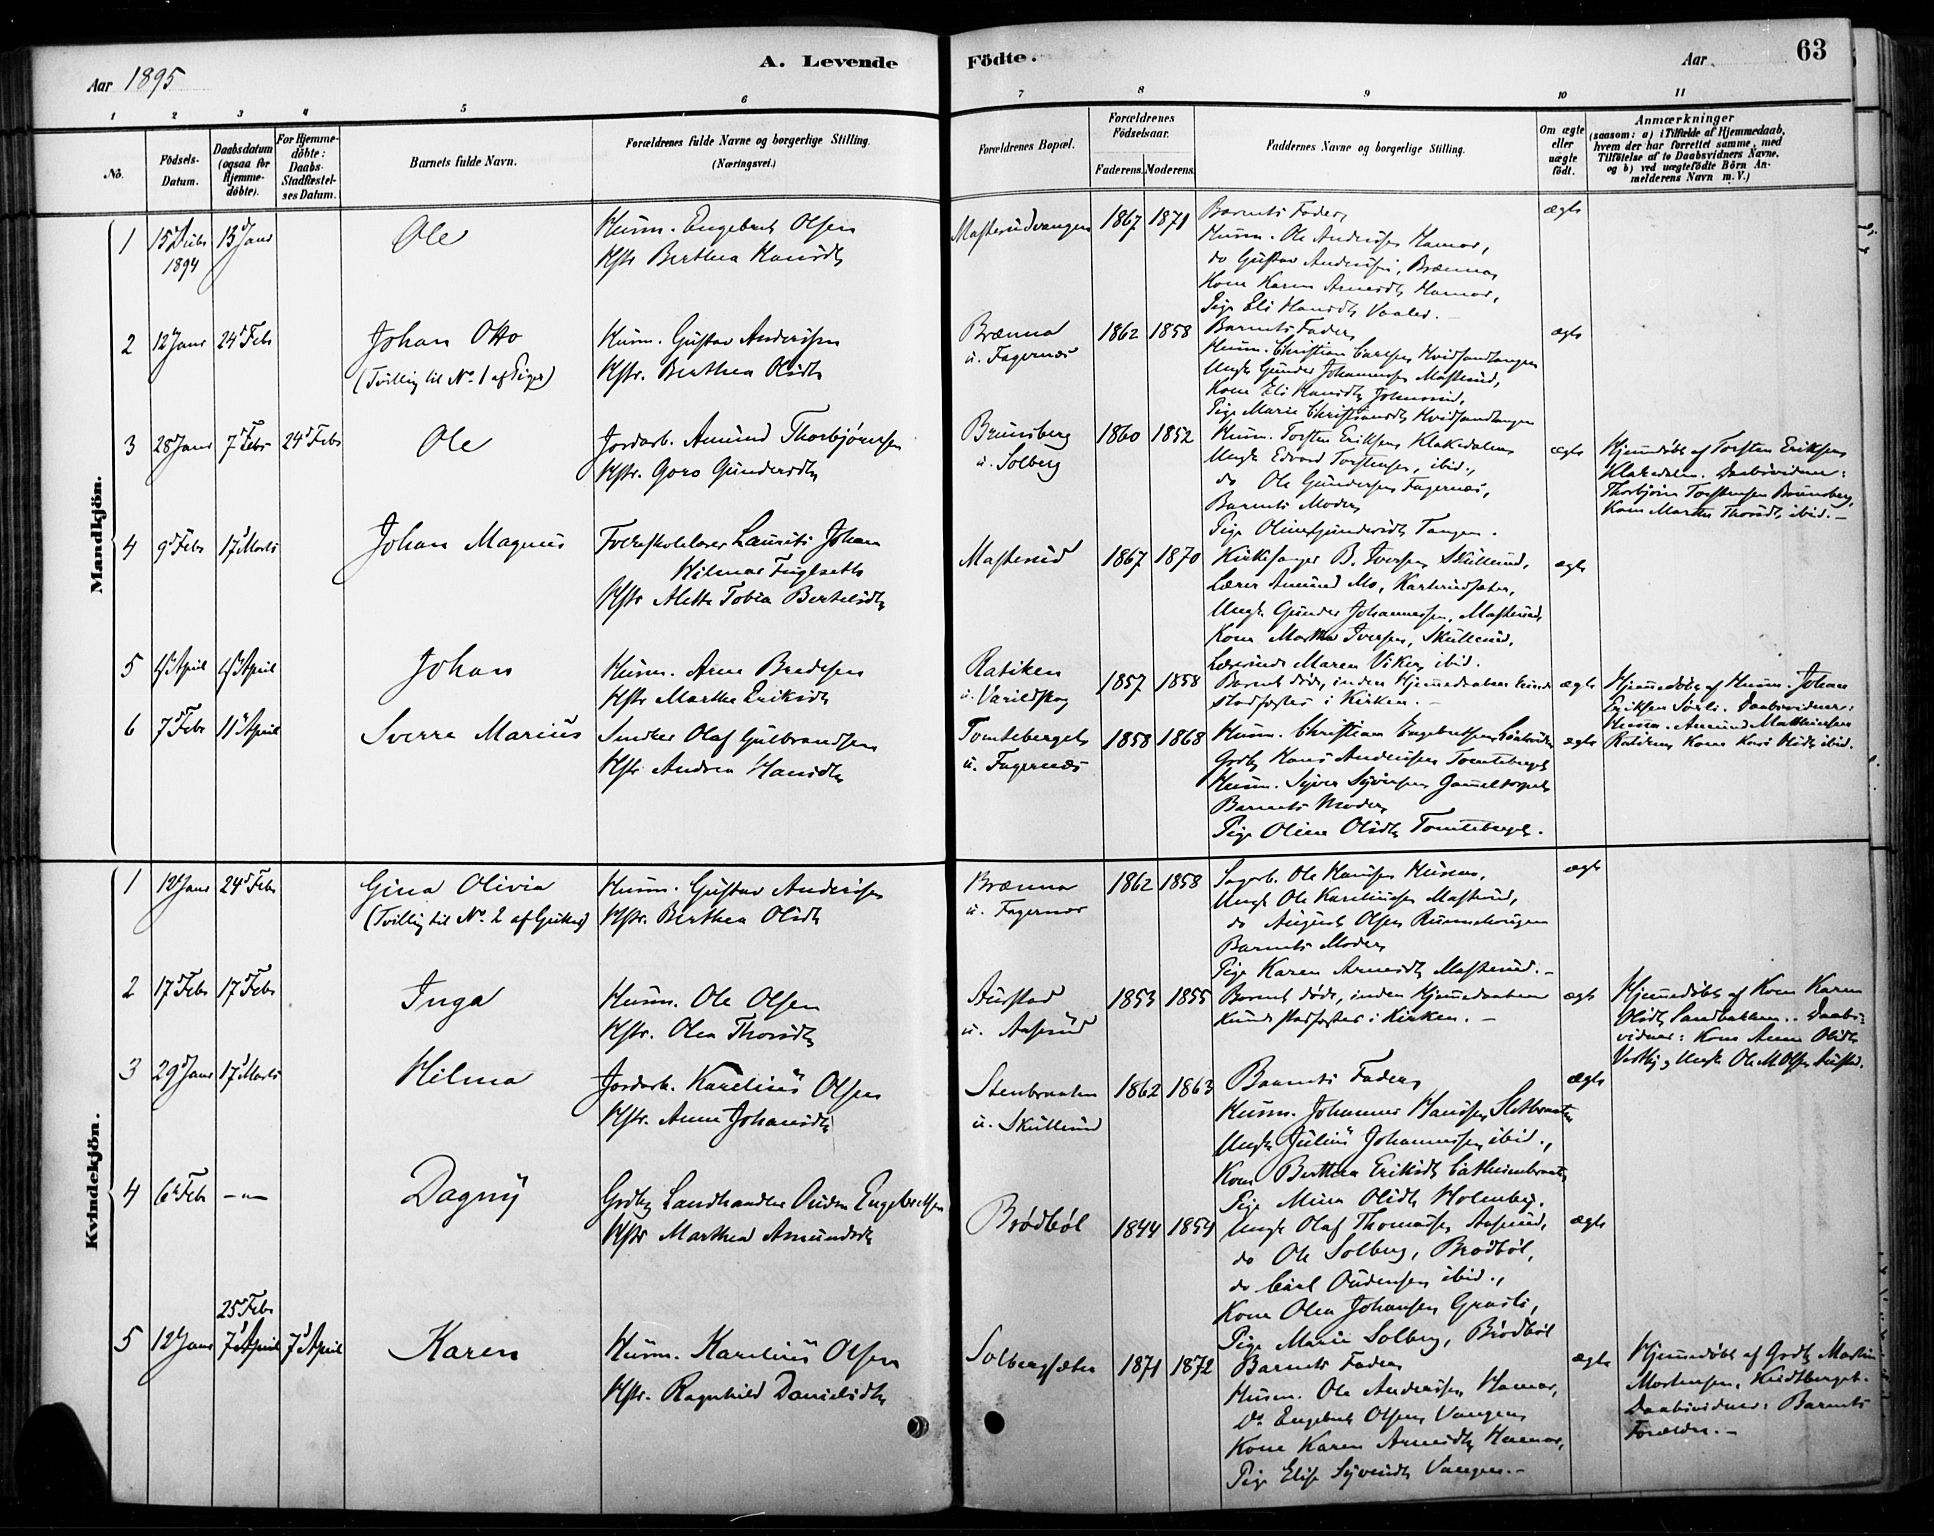 Aar 1895
A. Levende
Födte.
Aar
63
1 2 3 4 5 6 7 8 9 10 11
No.
Födsels-
Datum.
Daabsdatum
(ogsaa for
Hjemme-
döbte).
For Hjemme-
döbte:
Daabs-
Stadfæstel-
ses Datum.
Barnets fulde Navn.
Forældrenes fulde Navne og borgerlige Stilling.
(Næringsvei.)
Forældrenes Bopæl.
Forældrenes
Födselsaar.
Faderens. Moderens.
Faddernes Navne og borgerlige Stilling.
Om ægte
eller
uægte
födt.
Anmærkninger
(saasom: a) i Tilfælde af Hjemmedaab,
hvem der har forrettet samme, med
Tilföielse af to Daabsvidners Navne,
og b) ved uægtefödte Börn An-
melderens Navn m. V.)
Mandkjön.
1 15d Debr 1894
13d Janr
Ole
Husm. Engebret Olsen
Hstr Berthea Hansdtr
Masterudvangen
1867 1871
Barnets Fader,
Husm. Ole Andersen Hamar,
do Gustav Andersen, Brænna,
Kone Karen Arnesdtr Hamar,
Pige Eli Hansdtr Vaaler.
ægte
2 12 Janr 24d Febr
Johan Otto
(Tvilling til No. 1 af Piger)
Husm. Gustav Andersen
Hstr. Berthea Olsdtr
Brænna
u. Fagernæs
1862 1858
Barnets Fader,
Husm. Christian Carlsen Hvidsandtangen
Ungk Gunder Johannessen Masterud,
Kone Eli Hansdtr
Pige Marie Christiansdtr Hvidsandtangen
ægte
3 28d Janr 7d Febr 24d Febr
Ole
Jordarb. Amund Thorbjørnsen
Hstr. Goro Gundersdtr
Brunsberg
u. Solberg
1860 1852
Husm. Torsten Eriksen Klakedalen
Ungk Edvard Torstensen, ibid.,
do Ole Gundersen Fagernæs,
Barnets Moder,
Pige Oline Gundersdtr Tangen.
ægte
Hjemmedøbt af Torsten Eriksen
Klakedalen. Daabsvidner:
Thorbjørn Torstensen Brunsberg,
Kone Marthe Thorsdtr ibid. –
4 9d Febr 17d Marts
Johan Magnus
Folkeskolelærer Laurits Johan
Hilmar Fuglseth
Hstr Alette Tobia Bertelsdtr
Masterud
1867 1870
Kirkesanger B. Iversen Skullerud,
Lærer Amund Mo, Karterudsæter,
Ungk Gunder Johannessen, Masterud,
Kone Martha Iversen, Skullerud,
Lærerinde Maren Viker, ibid.
ægte
5 April April
Johan
Husm. Arne Bredesen
Hstr Marthe Eriksdtr
Ratiken
u. Varildskog
1857 1858
Barnet døde, inden Hjemmedaaben kunde
stadfæstes i Kirken. –
ægte
Hjemmedøbt af Husm. Johan
Eriksen Sørli. Daabsvidner:
Husm. Amund Matthiesen
Ratiken, Kone Kari Olsdtr ibid.
6 7d Febr 11d April
Sverre Marius
Snedker Olaf Gulbrandsen
Hstr Andrea Hansdtr
Tomteberget
u. Fagernæs
1858 1868
Husm. Christian Engebretsen
Grdbr Hans Andersen Tomteberget
Husm. Syver Syversen Gameltorpet
Barnets Moder,
Pige Oline Olsdtr Tomteberget.
ægte
Kvindekjön.
1 12 Janr 24d Febr
Gina Olivia
(Tvilling til No. 2 af Gutter)
Husm. Gustav Andersen
Hstr. Berthea Olsdtr
Brænna
u. Fagernæs
1862 1858
Sagarb. Ole Hansen
Ungk Ole Kareliussen Masterud,
do August Olsen
Barnets Moder,
Pige Karen Arnesdtr Masterud. –
ægte
2 17d Febr 17d Febr
Inga
Husm. Ole Olsen
Hstr. Olea Thorsdtr
Aurstad
u. Aaserud
1853 1855
Barnet døde, inden Hjemmedaaben
kunde stadfæstes i Kirken. –
ægte
Hjemmedøbt af Kone Karen
Olsdtr Sandbakken. Daabs-
vidner: Kone Anne Olsdtr
Vestby, Ungk Ole M. Olsen Aurstad.
3 29d Janr 17d Marts
Hilma
Jordarb. Karelius Olsen
Hstr. Anne Johansdtr
Stenbraaten
u. Skullerud
1862 1863
Barnets Fader,
Husm. Johannes Hansen Sletbraaten
Ungk Julius Johannessen ibid.,
Kone Berthea Eriksdtr
Pige Mina Olsdtr Holmberg.
ægte
4 6te Febr —"—
Dagny
Grdbr Landhandler Ouden Engebretsen
Hstr Marthea Amundsdtr
Brødbøl
1844 1854
Ungk Olaf Thomassen Aaserud,
do Ole Solberg, Brødbøl,
do Carl Oudensen ibid.,
Kone Olea Johansen Grasli,
Pige Marie Solberg, Brødbøl
ægte
5 12 Janr
25d Febr
7d April 7d April
Karen
Husm. Karelius Olsen
Hstr. Ragnhild Danielsdtr
Solbergsæter
1871 1872
Barnets Fader,
Husm. Ole Andersen Hamar,
Do Engebret Olsen Vangen,
Kone Karen Arnesdtr Hamar,
Pige Elise Syversdtr Vangen. –
ægte
Hjemmedøbt af Grdbr Martin
Mortensen,
Daabsvidner: Barnets
Forældre. –